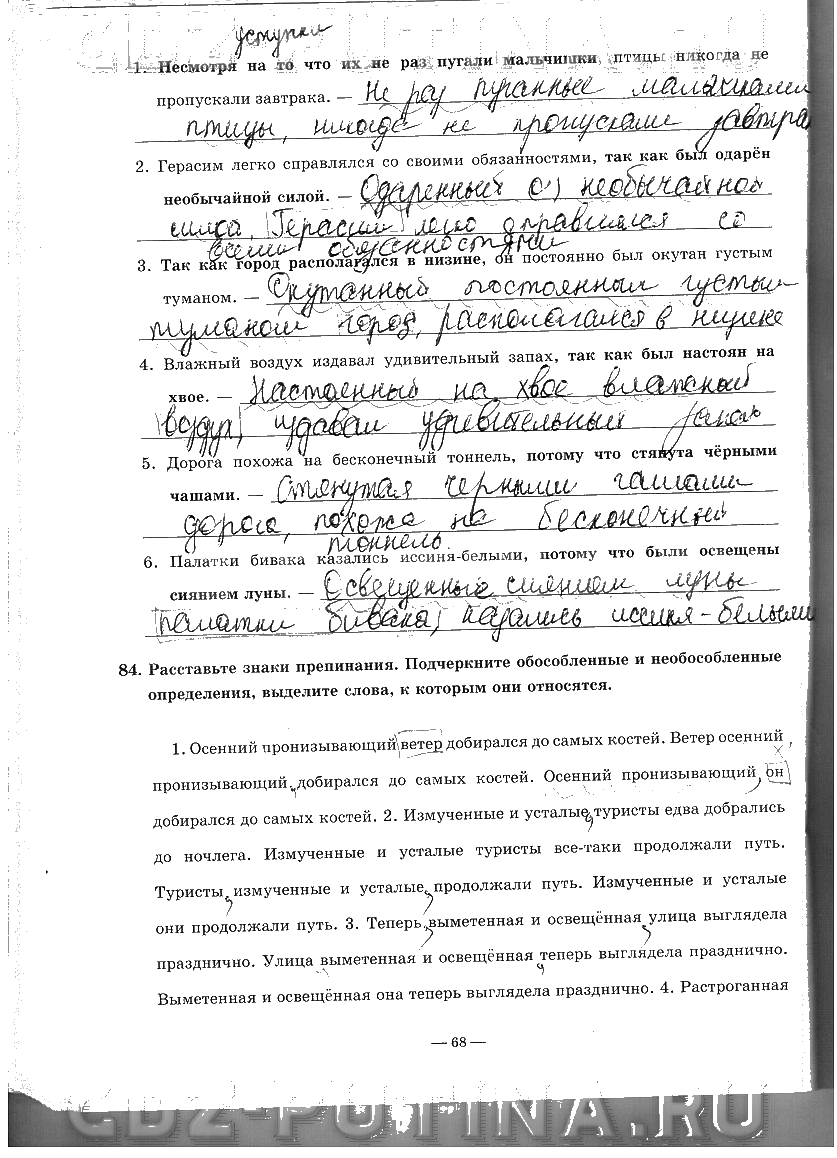 GDZ-PUTINA.RU
уступки
1. Несмотря на то что их не раз пугали мальчишки, птицы никогда не
пропускали завтрака. — Не раз пуганные мальчиками
птицы, никогда не пропускали завтра
2. Герасим легко справлялся со своими обязанностями, так как был одарён
необычайной силой. — Одаренный необычайной
силой, Герасим легко справлялся со
всеми обязенностями
3. Так как город располагался в низине, он постоянно был окутан густым
туманом. — Окутанный постоянным густым
туманом город, располагался в низине
4. Влажный воздух издавал удивительный запах, так как был настоян на
хвое. — Настоенный на хвое влажный
воздух, издавал удивительный запах
5. Дорога похожа на бесконечный тоннель, потому что стянута чёрными
чашами. — Стянутая черными чашами
дорога, похожа на бесконечный
тоннель.
6. Палатки бивака казались иссиня-белыми, потому что были освещены
сиянием луны. — Освещенные сиянием луны
палатки бивака, казались иссиня-белыми
84. Расставьте знаки препинания. Подчеркните обособленные и необособленные
определения, выделите слова, к которым они относятся.
1. Осенний пронизывающий ветер добирался до самых костей. Ветер осенний,
пронизывающий, добирался до самых костей. Осенний пронизывающий, он
добирался до самых костей. 2. Измученные и усталые, туристы едва добрались
до ночлега. Измученные и усталые туристы все-таки продолжали путь.
Туристы, измученные и усталые, продолжали путь. Измученные и усталые
они продолжали путь. 3. Теперь, выметенная и освещённая, улица выглядела
празднично. Улица выметенная и освещённая, теперь выглядела празднично.
Выметенная и освещённая она теперь выглядела празднично. 4. Растроганная
— 68 —
GDZ-PUTINA.RU